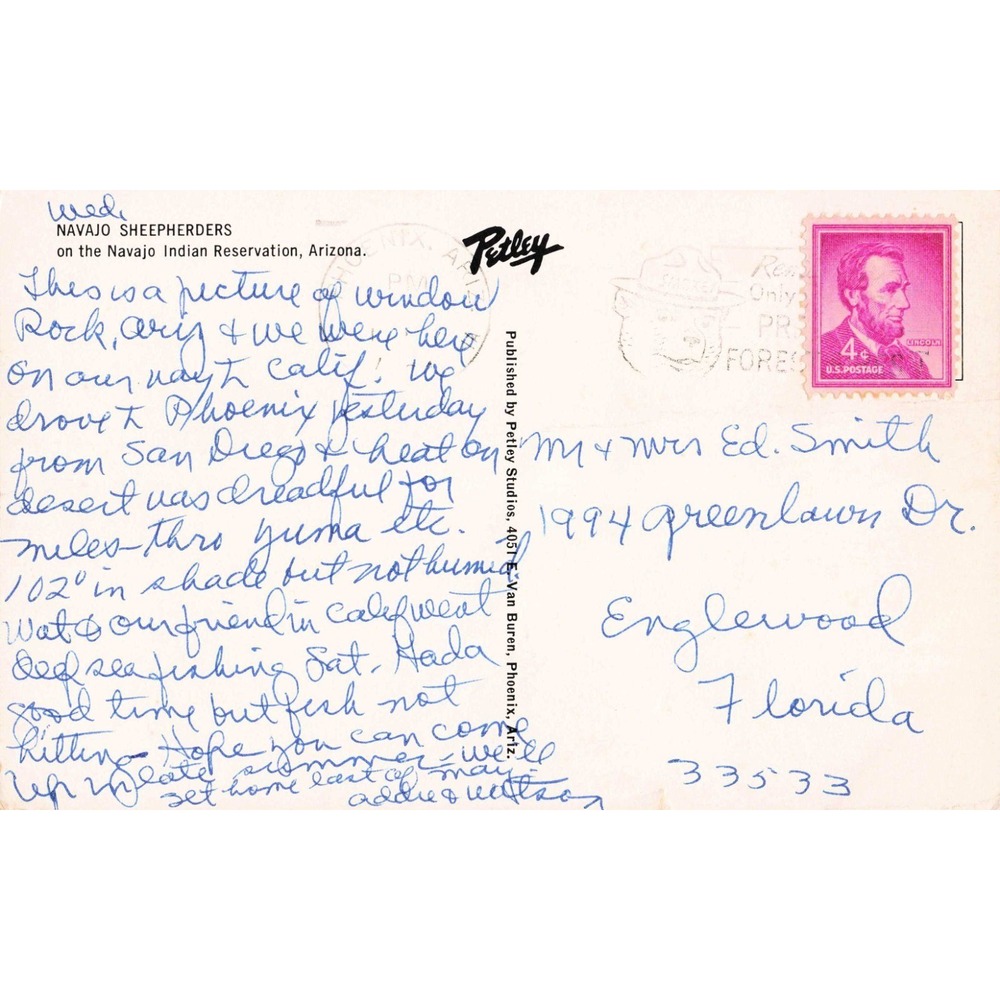 Wed.
NAVAJO SHEEPHERDERS
on the Navajo Indian Reservation, Arizona.
This is a picture of window
Rock, Ariz & we were here
on our way to Calif! We
drove to Phoenix yesterday
from San Diego & heat on
desert was dreadful for
miles-thro Yuma etc.
102° in shade but not humid.
Wat & our friend in Calif went
deep sea fishing Sat. Had a
good time but fish not
hitting - Hope you can come
up in late summer - we'll
get home last of May.
Addie & Watson
Petley
Published by Petley Studios, 4051 E. Van Buren, Phoenix, Ariz.
PHOENIX, ARIZ
PM
SMOKEY
Only
FORES
4¢
LINCOLN
U.S. POSTAGE
Mr & Mrs Ed. Smith
1994 Greenlawn Dr.
Englewood
Florida
33533